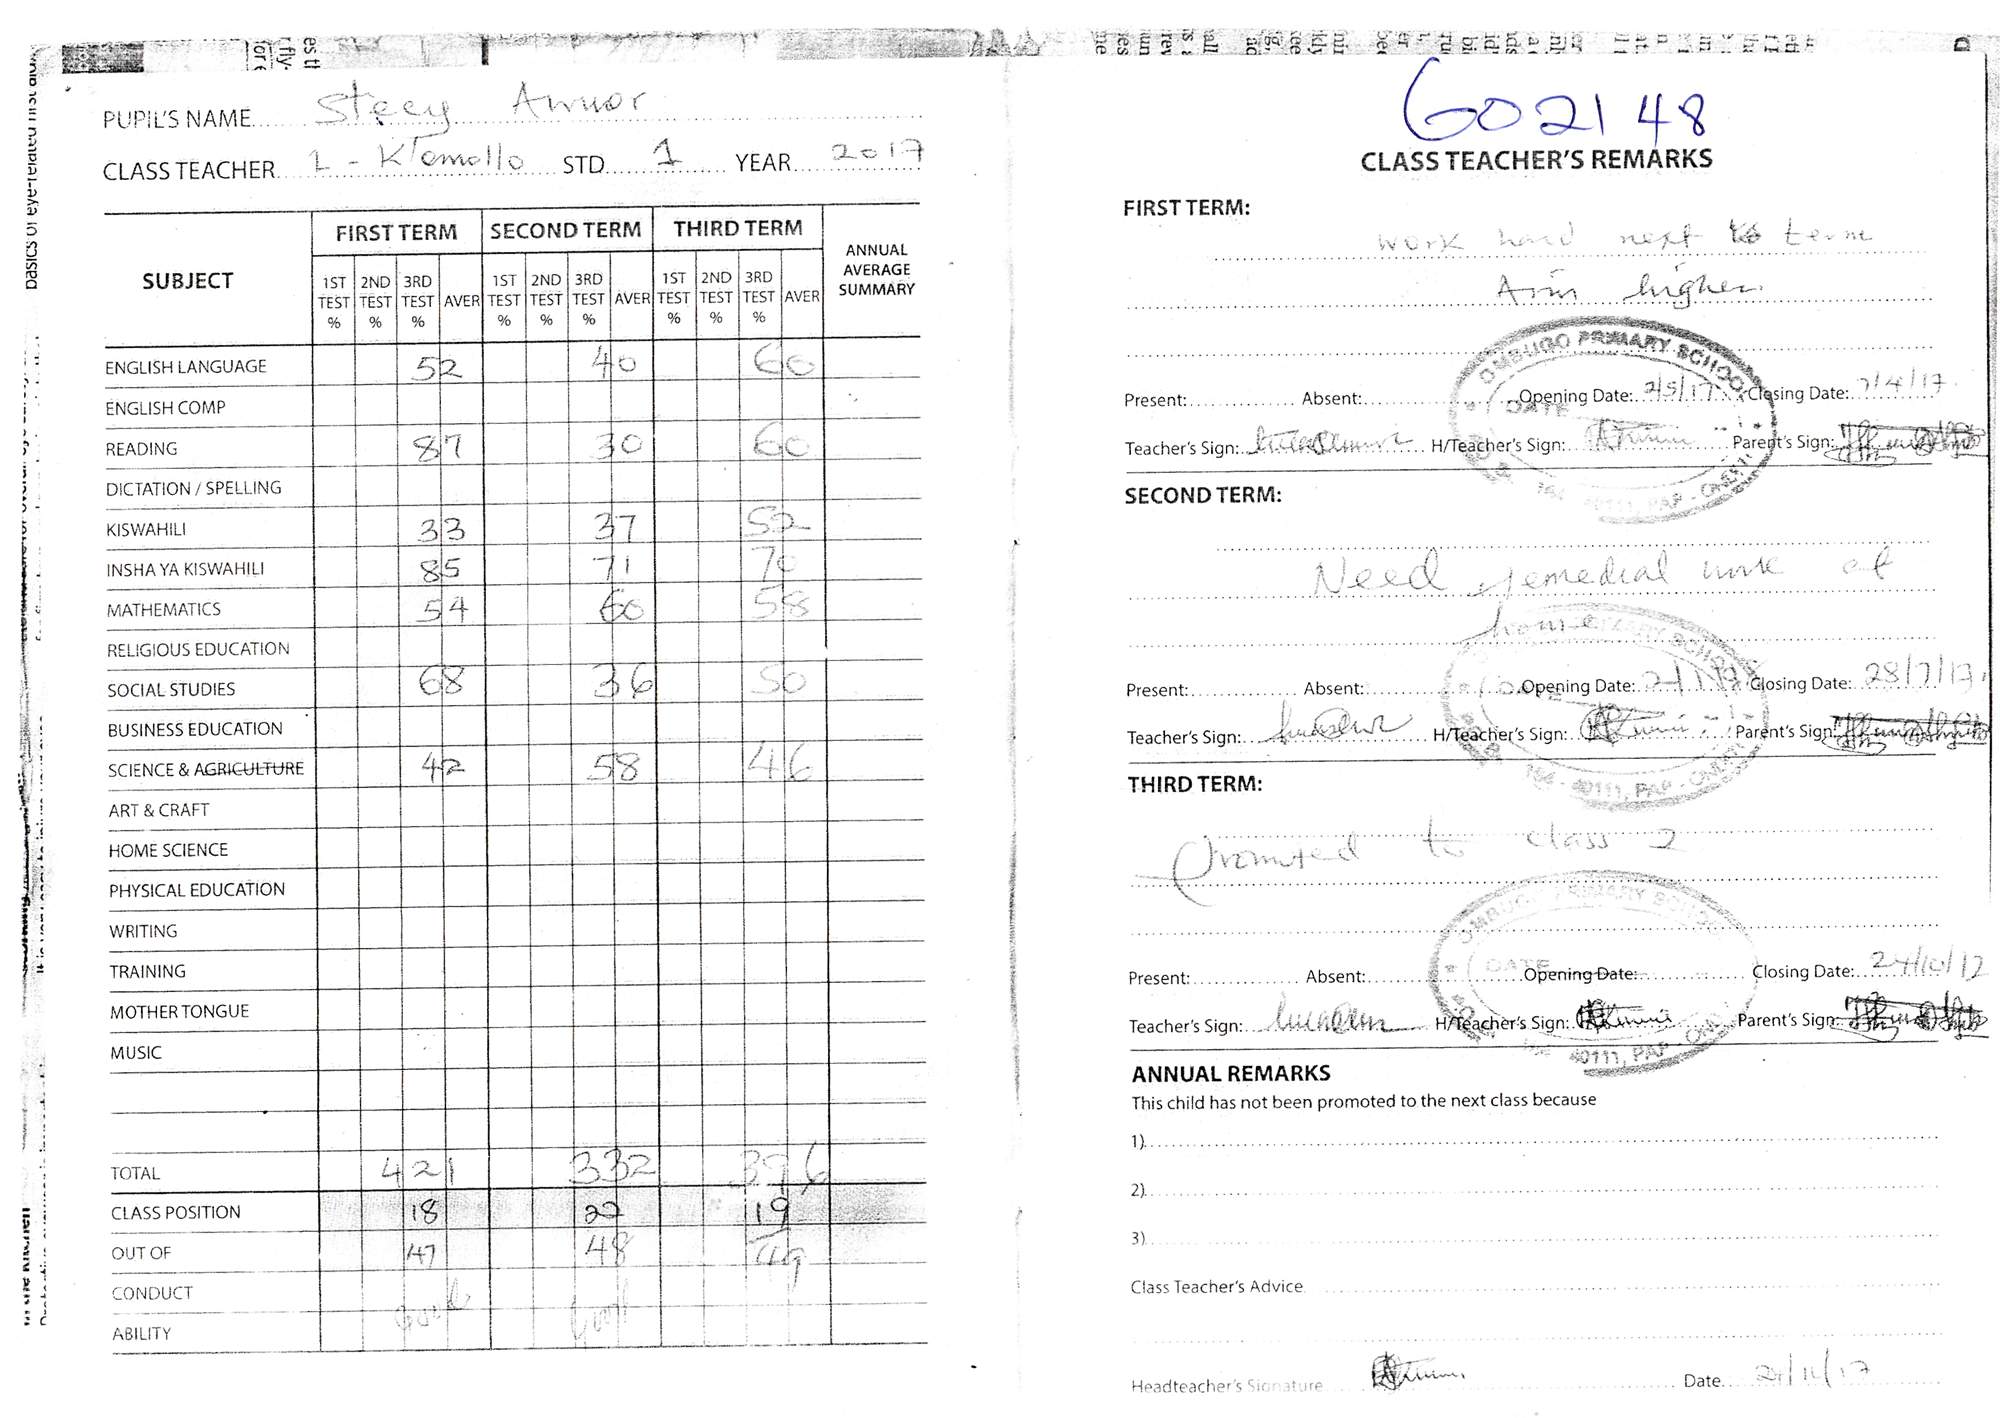 PUPIL'S NAME Stecy Awuor
CLASS TEACHER L - K'Omollo STD. 1 YEAR 2017
SUBJECT FIRST TERM SECOND TERM THIRD TERM ANNUAL AVERAGE SUMMARY
1ST TEST % 2ND TEST % 3RD TEST % AVER 1ST TEST % 2ND TEST % 3RD TEST % AVER 1ST TEST % 2ND TEST % 3RD TEST % AVER
ENGLISH LANGUAGE 52 40 60
ENGLISH COMP
READING 87 30 60
DICTATION / SPELLING
KISWAHILI 33 37 52
INSHA YA KISWAHILI 85 71 70
MATHEMATICS 54 60 58
RELIGIOUS EDUCATION
SOCIAL STUDIES 68 36 50
BUSINESS EDUCATION
SCIENCE & AGRICULTURE 42 58 46
ART & CRAFT
HOME SCIENCE
PHYSICAL EDUCATION
WRITING
TRAINING
MOTHER TONGUE
MUSIC
TOTAL 421 332 396
CLASS POSITION 18 22 19
OUT OF 47 48 49
CONDUCT Good Good
ABILITY
602148
CLASS TEACHER'S REMARKS
FIRST TERM:
Work hard next term
Aim higher
OMBUGO PRIMARY SCHOOL
DATE
164 - 40111, PAP - ONDITI
Present: Absent: Opening Date: 2/5/17 Closing Date: 7/4/17
Teacher's Sign: H/Teacher's Sign: Parent's Sign:
SECOND TERM:
Need remedial work at
home
Present: Absent: Opening Date: Closing Date: 28/7/17
Teacher's Sign: H/Teacher's Sign: Parent's Sign:
164 - 40111, PAP - ONDITI
THIRD TERM:
Promoted to class 2
OMBUGO PRIMARY SCHOOL
DATE
Present: Absent: Opening Date: Closing Date: 24/10/17
Teacher's Sign: H/Teacher's Sign: Parent's Sign:
164 - 40111, PAP - ONDITI
ANNUAL REMARKS
This child has not been promoted to the next class because
1)
2)
3)
Class Teacher's Advice
Headteacher's Signature Date 24/11/17